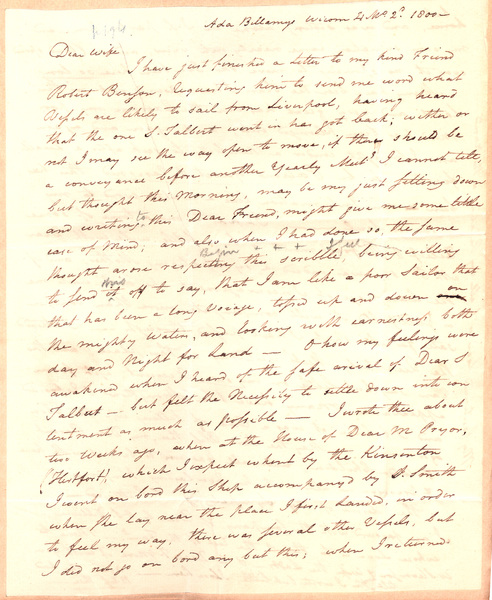 Ada Bellamys Wicom 4 Mo. 2d. 1800
Dear Wife
I have just finished a Letter to my kind Friend
Robert Benson, Requesting him to send me word what
Vessels are likely to sail from Liverpool, having heard
that the one S. Talbert went in has got back; wether or
not I may see the way open to move, if there should be
a conveyance before another Yearly Meetg. I cannot tell,
but thought this Morning, may be my just sitting down
and writing to this Dear Friend, might give me some little
ease of Mind; and also when I had done so, the same
thought arose respecting this scribble, being willing
to send off to say, that I am like a poor Sailor that
that has been a long Voyage, tossed up and down on
the mighty Water, and looking with earnestness both
day and Night for land — O how my feelings were
awakened when I heard of the safe arival of Dear S
Talbert — but felt the Necessity to settle down into con
tentment as much as possible — I wrote thee about
two Weeks ago, when at the House of Dear M Pryor,
(Hertford), which I expect whent by the Kinsenton
I went on bord this Ship accompany'd by D. Smith
where she lay near the place I first landed, in order
to feel my way, there was several other Vessels, but
I did not go on bord any but this; when I returned